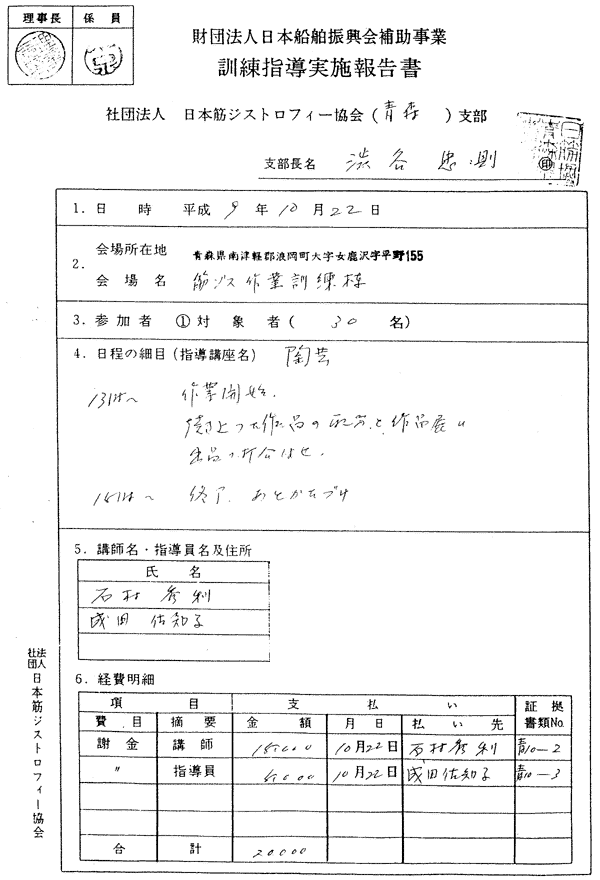 理事長 係員
財団法人日本船舶振興会補助事業
訓練指導実施報告書
社団法人 日本筋ジストロフィー協会(青森)支部
支部長名 渋谷忠則
印
1.日時 平成9年10月22日
2.会場所在地 青森県南津軽郡浪岡町大字女鹿沢字平野155
会場名 筋ジス作業訓練棟
3.参加者 ①対象者(30名)
4.日程の細目(指導講座名) 陶芸
13時~ 作業開始.
焼き上った作品の配分と作品展に
出品の打合はせ.
15時~ 終了. あとかたづけ
5.講師名・指導員名及住所
氏名
石村 秀利
成田 佐知子
6.経費明細
項目 支払い 証拠書類No.
費目 摘要 金額 月日 払い先
謝金 講師 15000 10月22日 石村秀利 青10-2
〃 指導員 5000 10月22日 成田佐知子 青10-3
合計 20000
社団法人 日本筋ジストロフィー協会